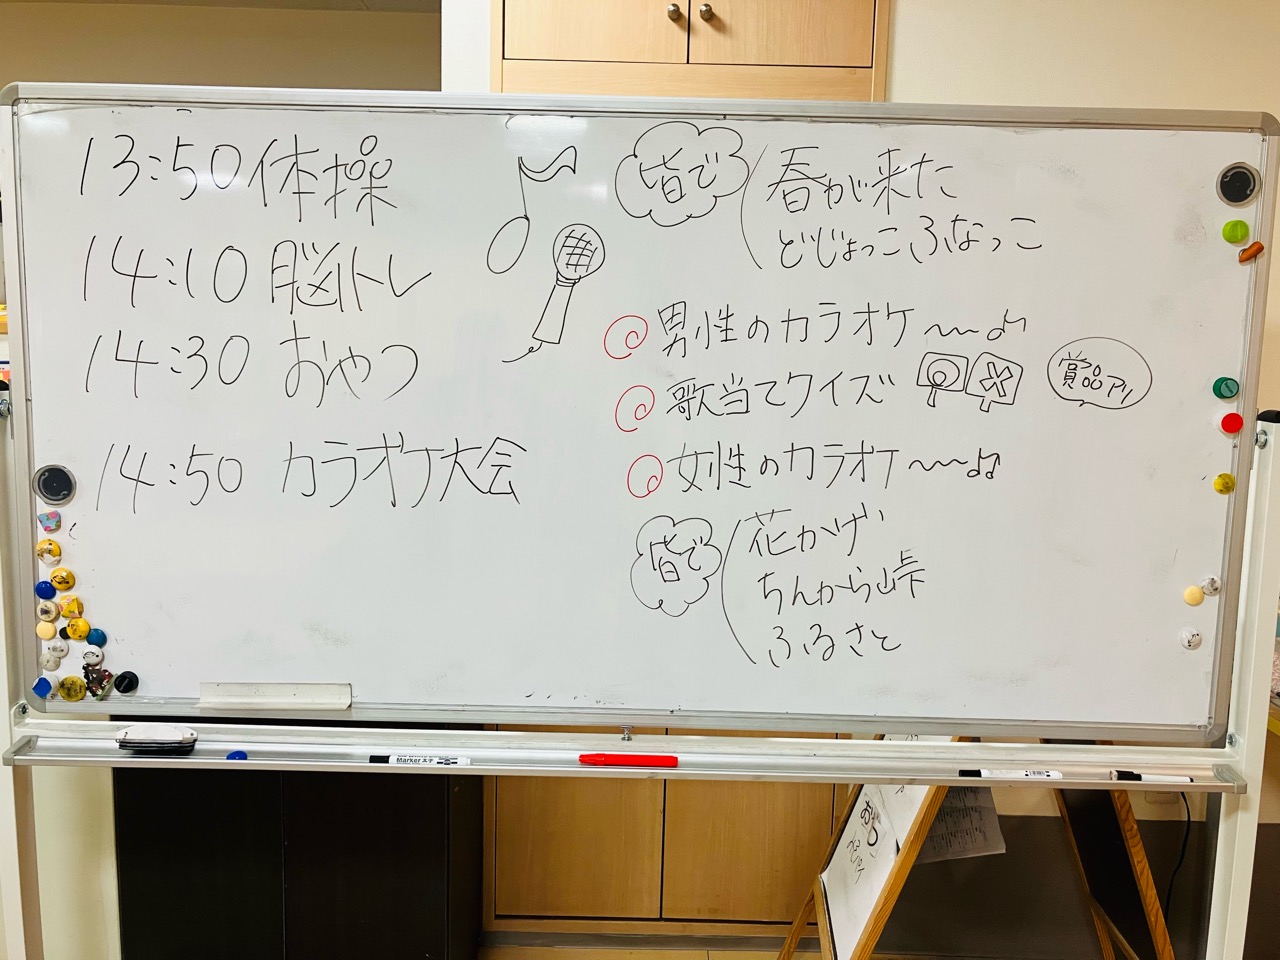 13:50 体操
14:10 脳トレ
14:30 おやつ
14:50 カラオケ大会
皆で
春が来た
どじょっこふなっこ
男性のカラオケ〜♪
歌当てクイズ
賞品アリ
女性のカラオケ〜♫
皆で
花かげ
ちんから峠
ふるさと
Marker 太字